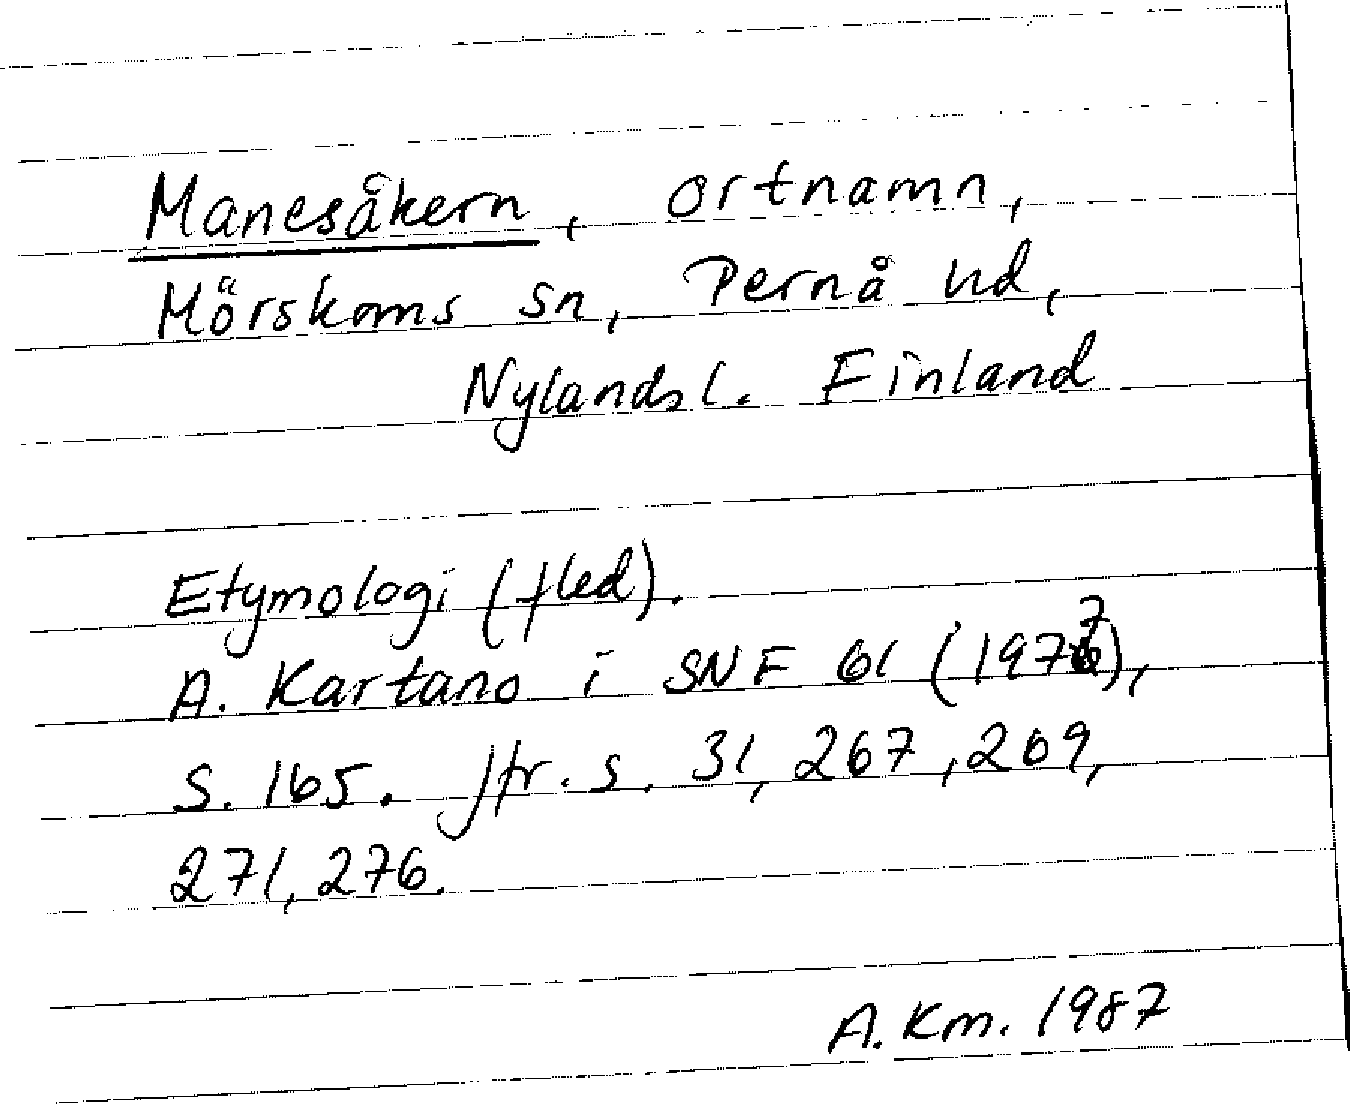 Manesåkern, ortnamn,
Mörskoms sn, Pernå hd,
Nylands l. Finland
Etymologi (fled).
A. Kartano i SNF 61 (1977),
s. 165. Jfr. s. 31, 267, 269,
271, 276.
A. Km. 1987